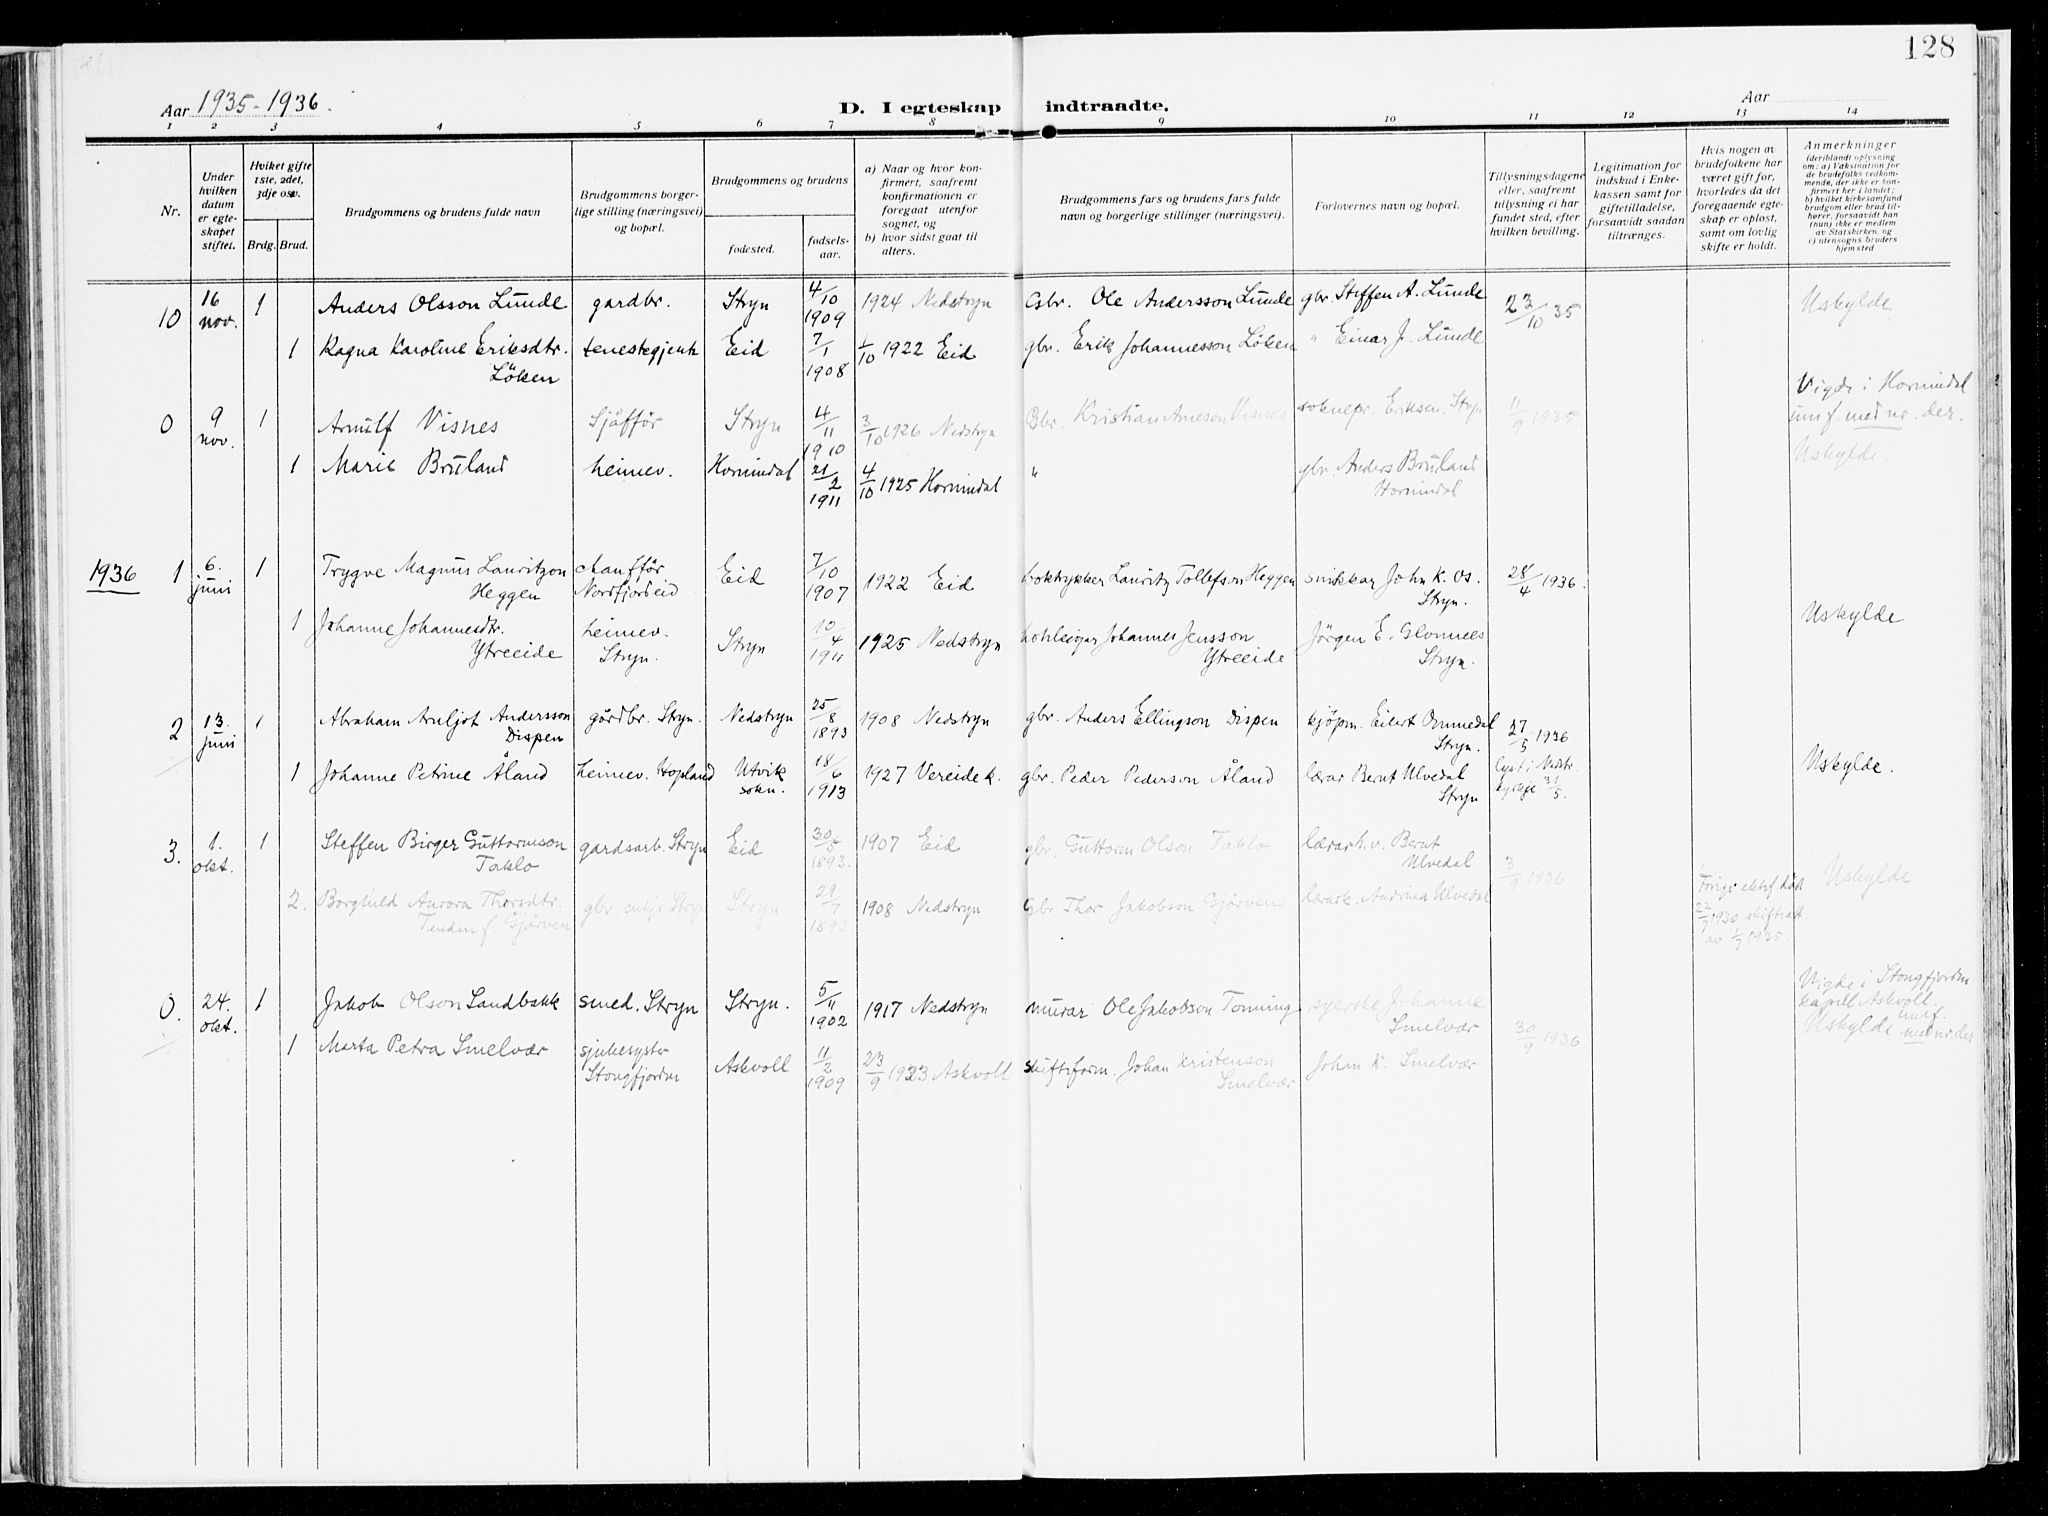 128
Aar 1935-1936.
D. I egteskap indtraadte.
Aar
1 2 3 4 5 6 7 8 9 10 11 12 13 14
Nr.
Under hvilken datum er egteskapet stiftet.
Hvilket gifte 1ste, 2det, 3dje osv.
Brdg. Brud.
Brudgommens og brudens fulde navn
Brudgommens borgerlige stilling (næringsvei) og bopæl.
Brudgommens og brudens
fødested.
fødselsaar.
a) Naar og hvor konfirmert, saafremt konfirmationen er foregaat utenfor sognet, og
b) hvor sidst gaat til alters.
Brudgommens fars og brudens fars fulde navn og borgerlige stillinger (næringsvei).
Forlovernes navn og bopæl.
Tillysningsdagene eller, saafremt tillysning ei har fundet sted, efter hvilken bevilling.
Legitimation for indskud i Enkekassen samt for giftetilladelse, forsaavidt saadan tiltrænges.
Hvis nogen av brudefolkene har været gift før, hvorledes da det foregaaende egteskap er opløst, samt om lovlig skifte er holdt.
Anmerkninger
(deriblandt oplysning om: a) Vaksination for de brudefolks vedkommende, der ikke er konfirmert her i landet; b) hvilket kirkesamfund brudgom eller brud tilhører, forsaavidt han (hun) ikke er medlem av Statskirken, og c) utensogns bruders hjemsted
10 16 nov. 1 Anders Olsson Lunde gardbr. Stryn 4/10 1909 1924 Nedstryn Gbr. Ole Andersson Lunde gbr. Steffen A. Lunde 23/10 35 Uskylde
1 Ragna Karoline Eriksdtr. Løken tenestegjente Eid 7/1 1908 1/10 1922 Eid gbr. Erik Johannesson Løken " Einar J. Lunde
0 9 nov. 1 Arnulf Visnes Sjåffør Stryn 4/11 1910 3/10 1926 Nedstryn Gbr. Kristian Arneson Visnes soknepr. Eriksen, Stryn 11/9 1935. Vigde i Hornindal innf. med nr. der. Uskylde.
1 Marie Bruland heimev. Hornindal 21/2 1911 4/10 1925 Hornindal " gbr. Anders Bruland Hornindal
1936 1 6. juni 1 Trygve Magnus Lauritzon Heggen chauffør Nordfjordeid Eid 7/10 1907 1922 Eid boktrykker Lauritz Tollefson Heggen snikkar John K. Os. Stryn. 28/4 1936.
1 Johanne Johannesdtr. Ytreeide heimev. Stryn. Stryn 10/4 1911 1925 Nedstryn Johannes Jensson Ytreeide Jørgen E. Glomnes Stryn. Uskylde
2 13. juni 1 Abraham Arnljot Andersson Dispen gårdbr. Stryn. Nedstryn 25/8 1893 1908 Nedstryn gbr. Anders Ellingson Dispen kjøpm. Eilert Ommedal Stryn. 27/5 1936
1 Johanne Petrine Åland heimev. Hopland Utvik sokn. 18/6 1913 1927 Vereide k. gbr. Peder Pederson Åland lærar Bernt Ulvedal Stryn lyst i Nedstr. kyrkje 31/5. Uskylde.
3. 1. okt. 1 Steffen Birger Guttormson Taklo gardsarb. Stryn Eid 30/5 1893. 1907 Eid gbr. Guttorm Olson Taklo lærar h.v. Bernt Ulvedal 3/9 1936 Uskylde
2. Borghild Aurora Thorsdtr. Tenden f. Gjørven gbr. enkje Stryn Stryn 29/7 1893 1908 Nedstryn Gbr. Thor Jakobson Gjørven lærark. Andrina Ulvedal Forige ektef. død 22/7 1930 skifteatt. av 1/7 1935.
0. 24. okt. 1 Jakob Olson Sandbakk smed, Stryn Stryn. 5/11 1902 1917 Nedstryn murar Ole Jakobson Tonning syerske Johanne Smelvær 30/9 1936 Vigde i Stongfjorden kapell Askvoll. Uskylde innf. med nr. der
1 Marta Petra Smelvær sjukesyster Stongfjorden Askvoll 11/2 1909 23/9 1923 Askvoll skiftsform. Johan Kristenson Smelvær Johan K. Smelvær